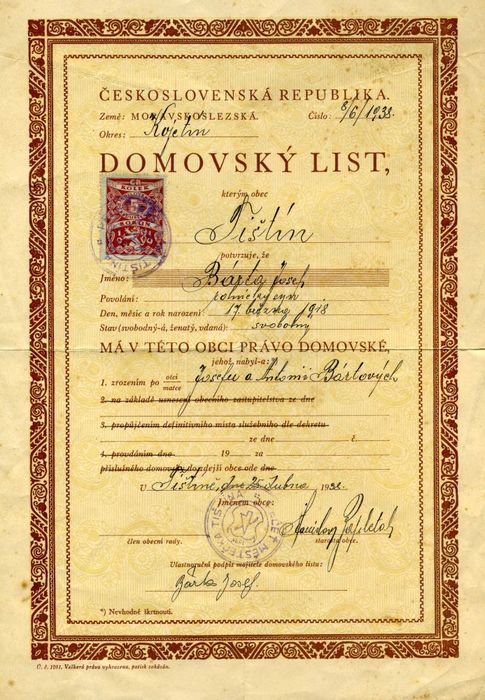 ČESKOSLOVENSKÁ REPUBLIKA.
Země: MORAVSKOSLEZSKÁ. Číslo: 8/6/1938.
Okres: Kojetín
DOMOVSKÝ LIST,
kterým obec
KOLEK
Tištín
potvrzuje, že
Jméno: Bárta Josef
Povolání: rolnický syn
Den, měsíc a rok narození: 17. března 1918
Stav (svobodný-á, ženatý, vdaná): svobodný
MÁ V TÉTO OBCI PRÁVO DOMOVSKÉ,
jehož nabyl-a:*)
1. zrozením po otci matce Josefu a Antonii Bártových
2. na základě usnesení obecního zastupitelstva ze dne
3. propůjčením definitivního místa služebního dle dekretu
ze dne č.
4. provdáním dne 19 za
příslušného domovsky do zdejší obce ode dne
v Tištíně, dne 25. dubna 1938.
Jménem obce:
člen obecní rady. starosta obce.
Vlastnoruční podpis majitele domovského listu:
Bárta Josef.
*) Nevhodné škrtnouti.
Ú. č. 1201. Veškerá práva vyhrazena, patisk zakázán.